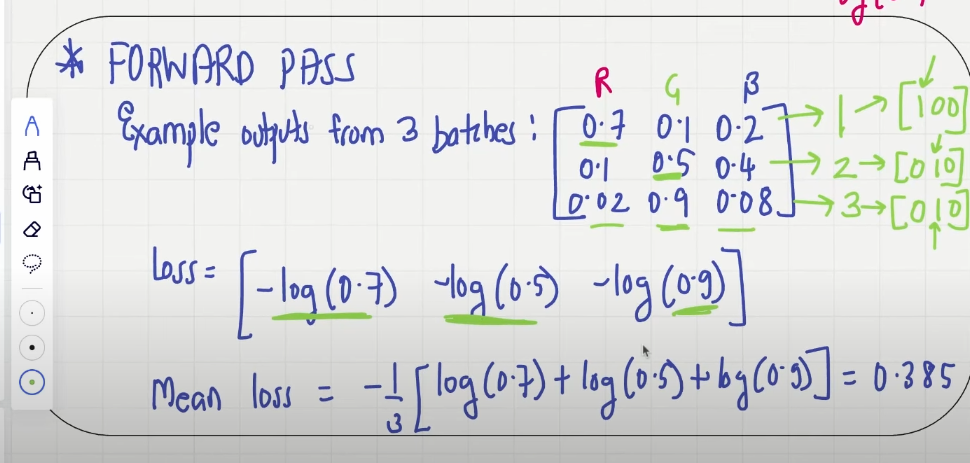 * FORWARD PASS
R G B
Example outputs from 3 batches : [0.7 0.1 0.2] → 1 → [100]
0.1 0.5 0.4 → 2 → [010]
0.02 0.9 0.08 → 3 → [010]
Loss = [-log(0.7) -log(0.5) -log(0.9)]
Mean loss = -1/3 [log(0.7) + log(0.5) + log(0.9)] = 0.385